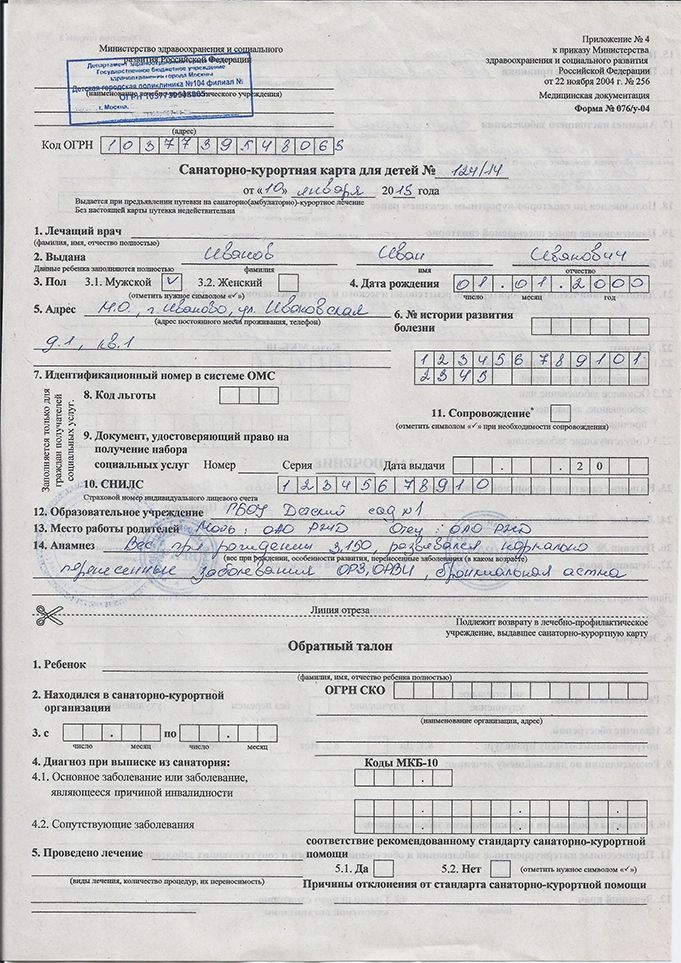 Приложение № 4
к приказу Министерства
здравоохранения и социального развития
Российской Федерации
от 22 ноября 2004 г. № 256
Медицинская документация
Форма № 076/у-04
Министерство здравоохранения и социального
развития Российской Федерации
Департамент здравоохранения
Государственное бюджетное учреждение
здравоохранения города Москвы
Детская городская поликлиника №104 филиал №
ОГРН 1037739548065
г. Москва
(наименование лечебно-профилактического учреждения)
(адрес)
Код ОГРН 1037739548065
Санаторно-курортная карта для детей № 124/14
от «10» января 2015 года
Выдается при предъявлении путевки на санаторно(амбулаторно)-курортное лечение
Без настоящей карты путевка недействительна
1. Лечащий врач
(фамилия, имя, отчество полностью)
2. Выдана Иванов Иван Иванович
Данные ребенка заполняются полностью фамилия имя отчество
3. Пол 3.1. Мужской V 3.2. Женский 4. Дата рождения 01.01.2000
(отметить нужное символом «✓») число месяц год
5. Адрес М.О., г. Иваново, ул. Ивановская
(адрес постоянного места проживания, телефон)
6. № истории развития
болезни
д.1, кв.1
1234567891012345
7. Идентификационный номер в системе ОМС
Заполняется только для
граждан получателей
социальных услуг.
8. Код льготы
11. Сопровождение*
(отметить символом «✓» при необходимости сопровождения)
9. Документ, удостоверяющий право на
получение набора
социальных услуг Номер Серия Дата выдачи . . 20
10. СНИЛС 12345678910
Страховой номер индивидуального лицевого счета
12. Образовательное учреждение ГБОУ Детский сад №1
13. Место работы родителей Мать: ОАО РЖД Отец: ОАО РЖД
14. Анамнез Вес при рождении 3,150, развивался нормально
(вес при рождении, особенности развития, перенесенные заболевания (в каком возрасте)
перенесенные заболевания ОРЗ, ОРВИ, бронхиальная астма
Линия отреза
Подлежит возврату в лечебно-профилактическое
учреждение, выдавшее санаторно-курортную карту
Обратный талон
1. Ребенок
(фамилия, имя, отчество ребенка полностью)
2. Находился в санаторно-курортной
организации
ОГРН СКО
(наименование организации, адрес)
3. с . по .
число месяц число месяц
4. Диагноз при выписке из санатория: Коды МКБ-10
4.1. Основное заболевание или заболевание,
являющееся причиной инвалидности
4.2. Сопутствующие заболевания
5. Проведено лечение
(виды лечения, количество процедур, их переносимость)
соответствие рекомендованному стандарту санаторно-курортной
помощи
5.1. Да 5.2. Нет (отметить нужное символом «✓»)
Причины отклонения от стандарта санаторно-курортной помощи